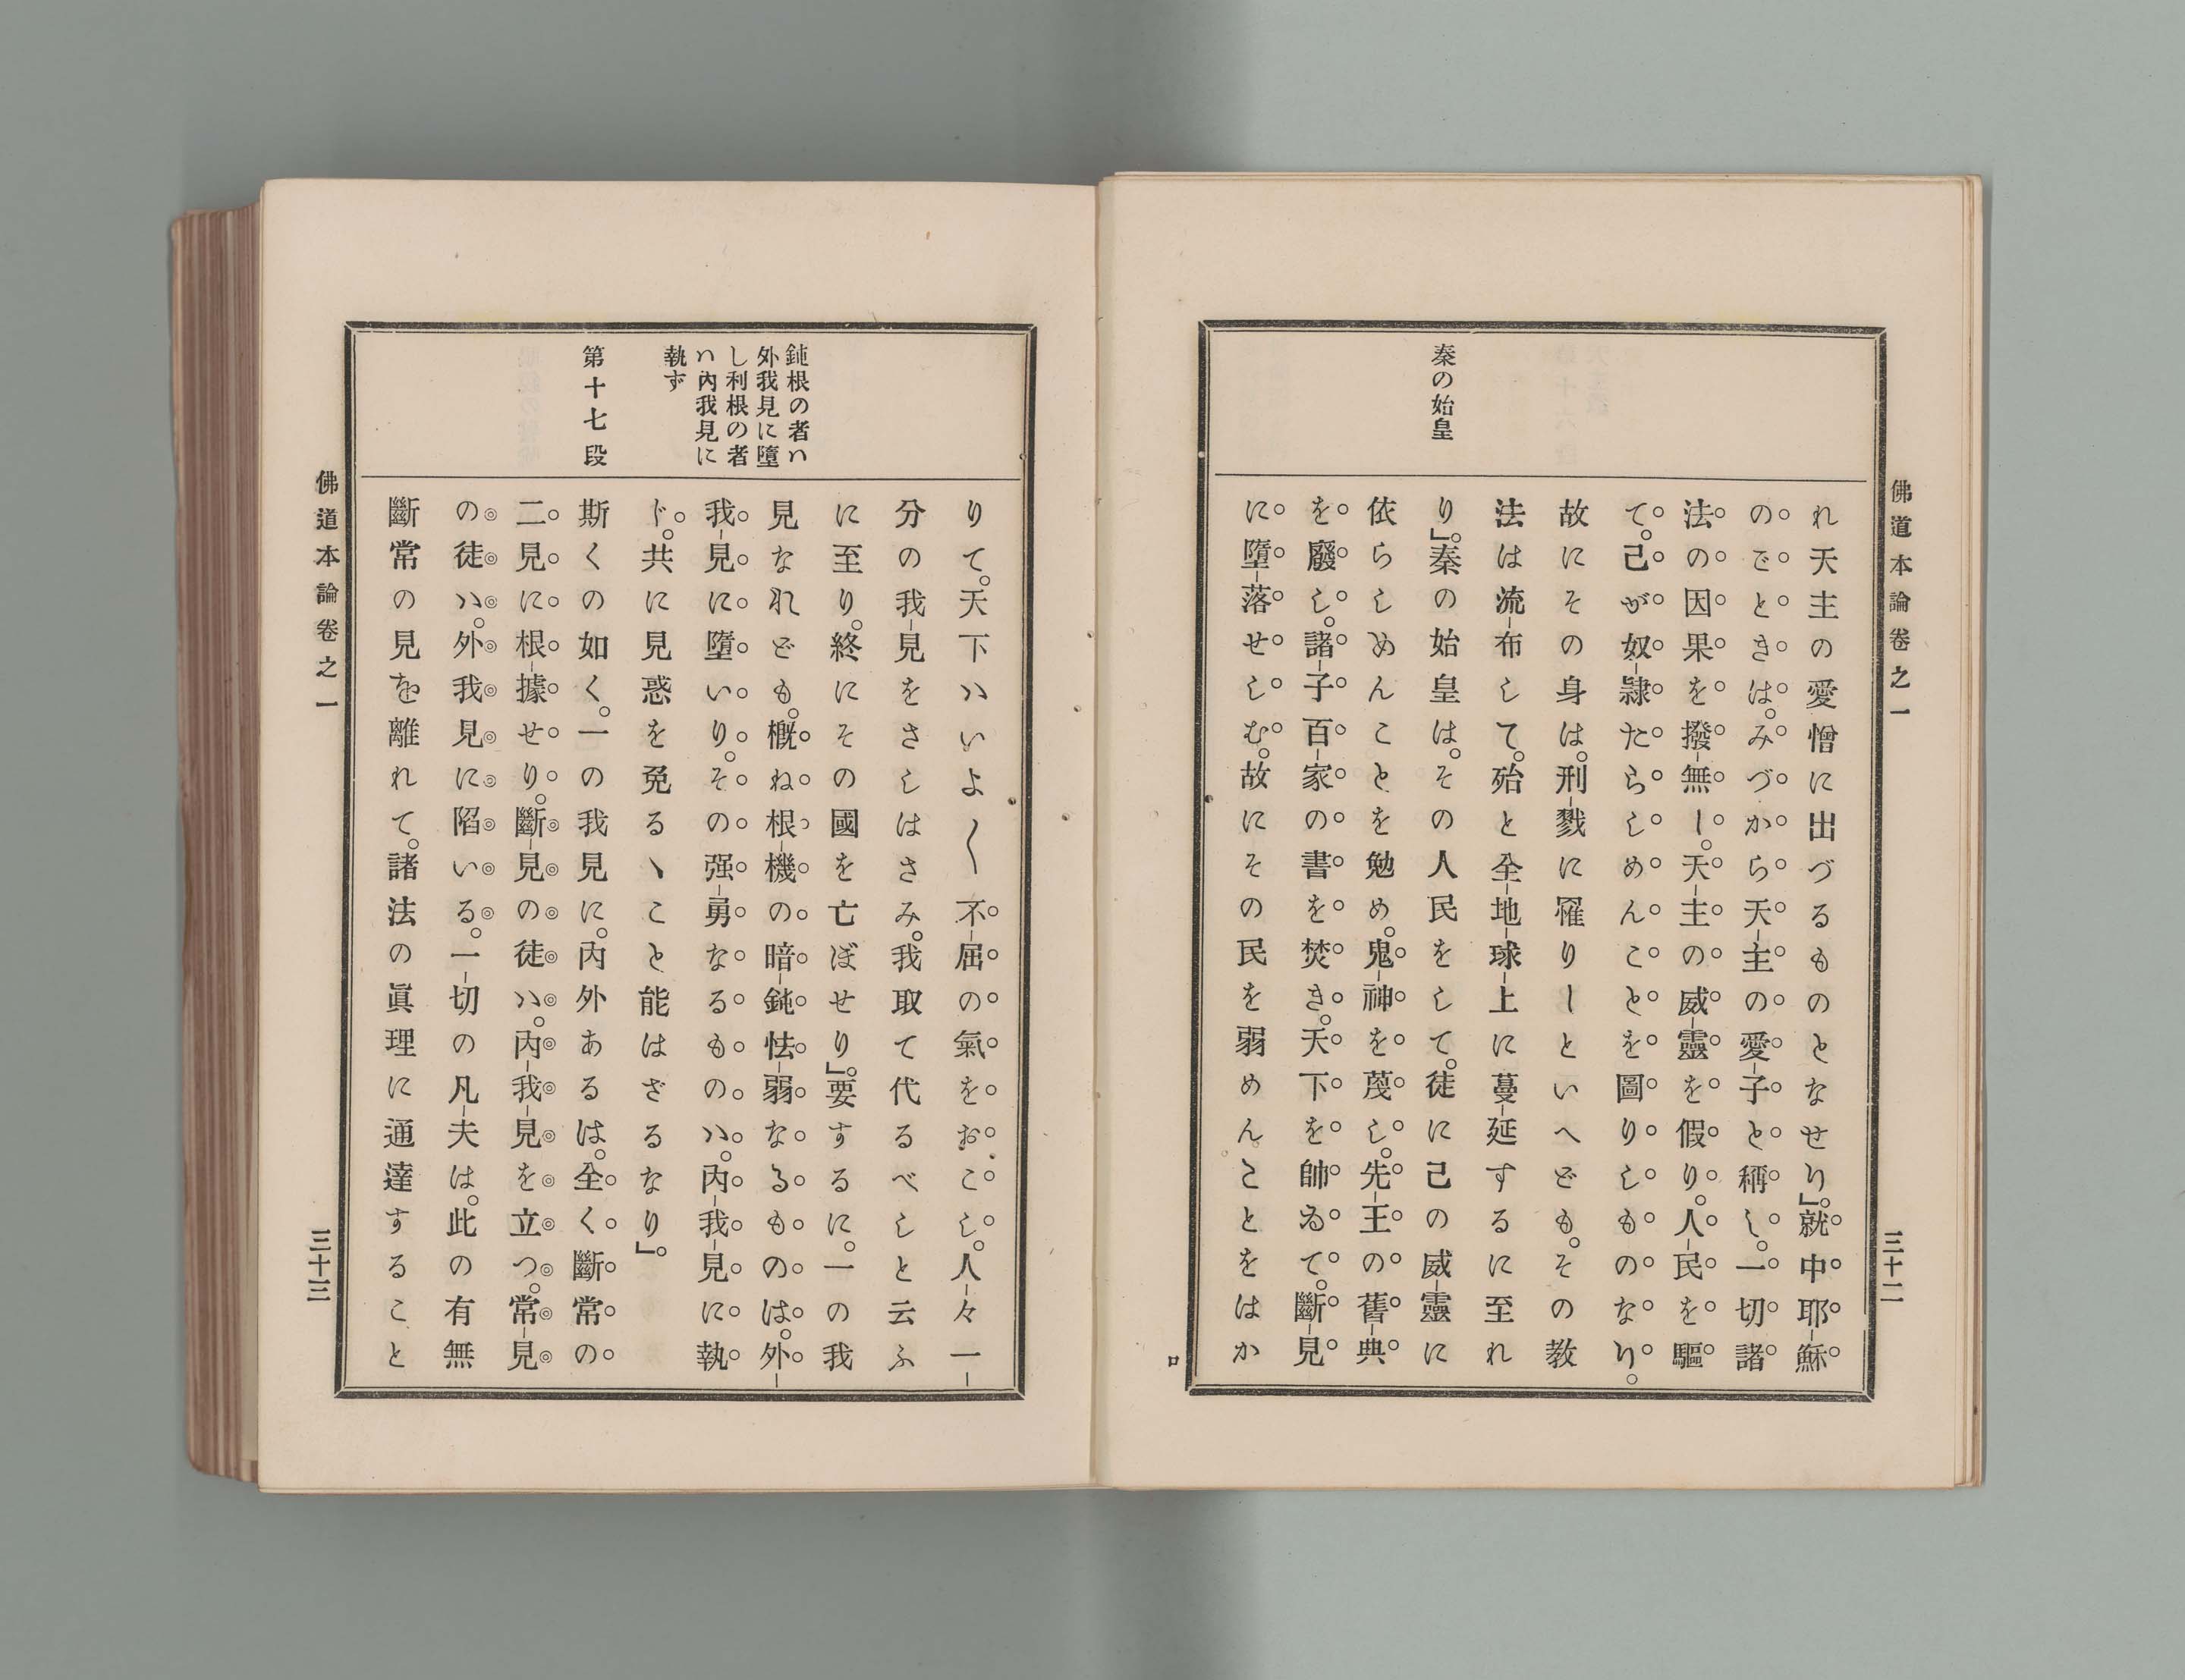 佛道本論卷之一
三十二
秦の始皇
れ天主の愛憎に出づるものとなせり」。就中耶穌
のごときは。みづから天主の愛子と稱し。一切諸
法の因果を撥無し。天主の威靈を假り。人民を驅
て。己が奴隷たらしめんことを圖りしものなり。
故にその身は。刑戮に罹りしといへども。その教
法は流布して。殆と全地球上に蔓延するに至れ
り」。秦の始皇は。その人民をして。徒に己の威靈に
依らしめんことを勉め。鬼神を蔑し。先王の舊典
を廢し。諸子百家の書を焚き。天下を帥ゐて。斷見
に墮落せしむ。故にその民を弱めんことをはか
ロ
りて。天下ハいよ〱不屈の氣をおこし。人々一
分の我見をさしはさみ。我取て代るべしと云ふ
に至り。終にその國を亡ぼせり」。要するに。一の我
見なれども。概ね根機の暗鈍怯弱なるものは。外
我見に墮いり。その强勇なるものハ。內我見に執
ず。共に見惑を免るヽこと能はざるなり」。
斯くの如く。一の我見に。內外あるは。全く斷常の
二見に根據せり。斷見の徒ハ。內我見を立つ。常見
の徒ハ。外我見に陷いる。一切の凡夫は。此の有無
斷常の見を離れて。諸法の眞理に通達すること
鈍根の者ハ
外我見に墮
し利根の者
ハ內我見に
執ず
第十七段
佛道本論卷之一
三十三